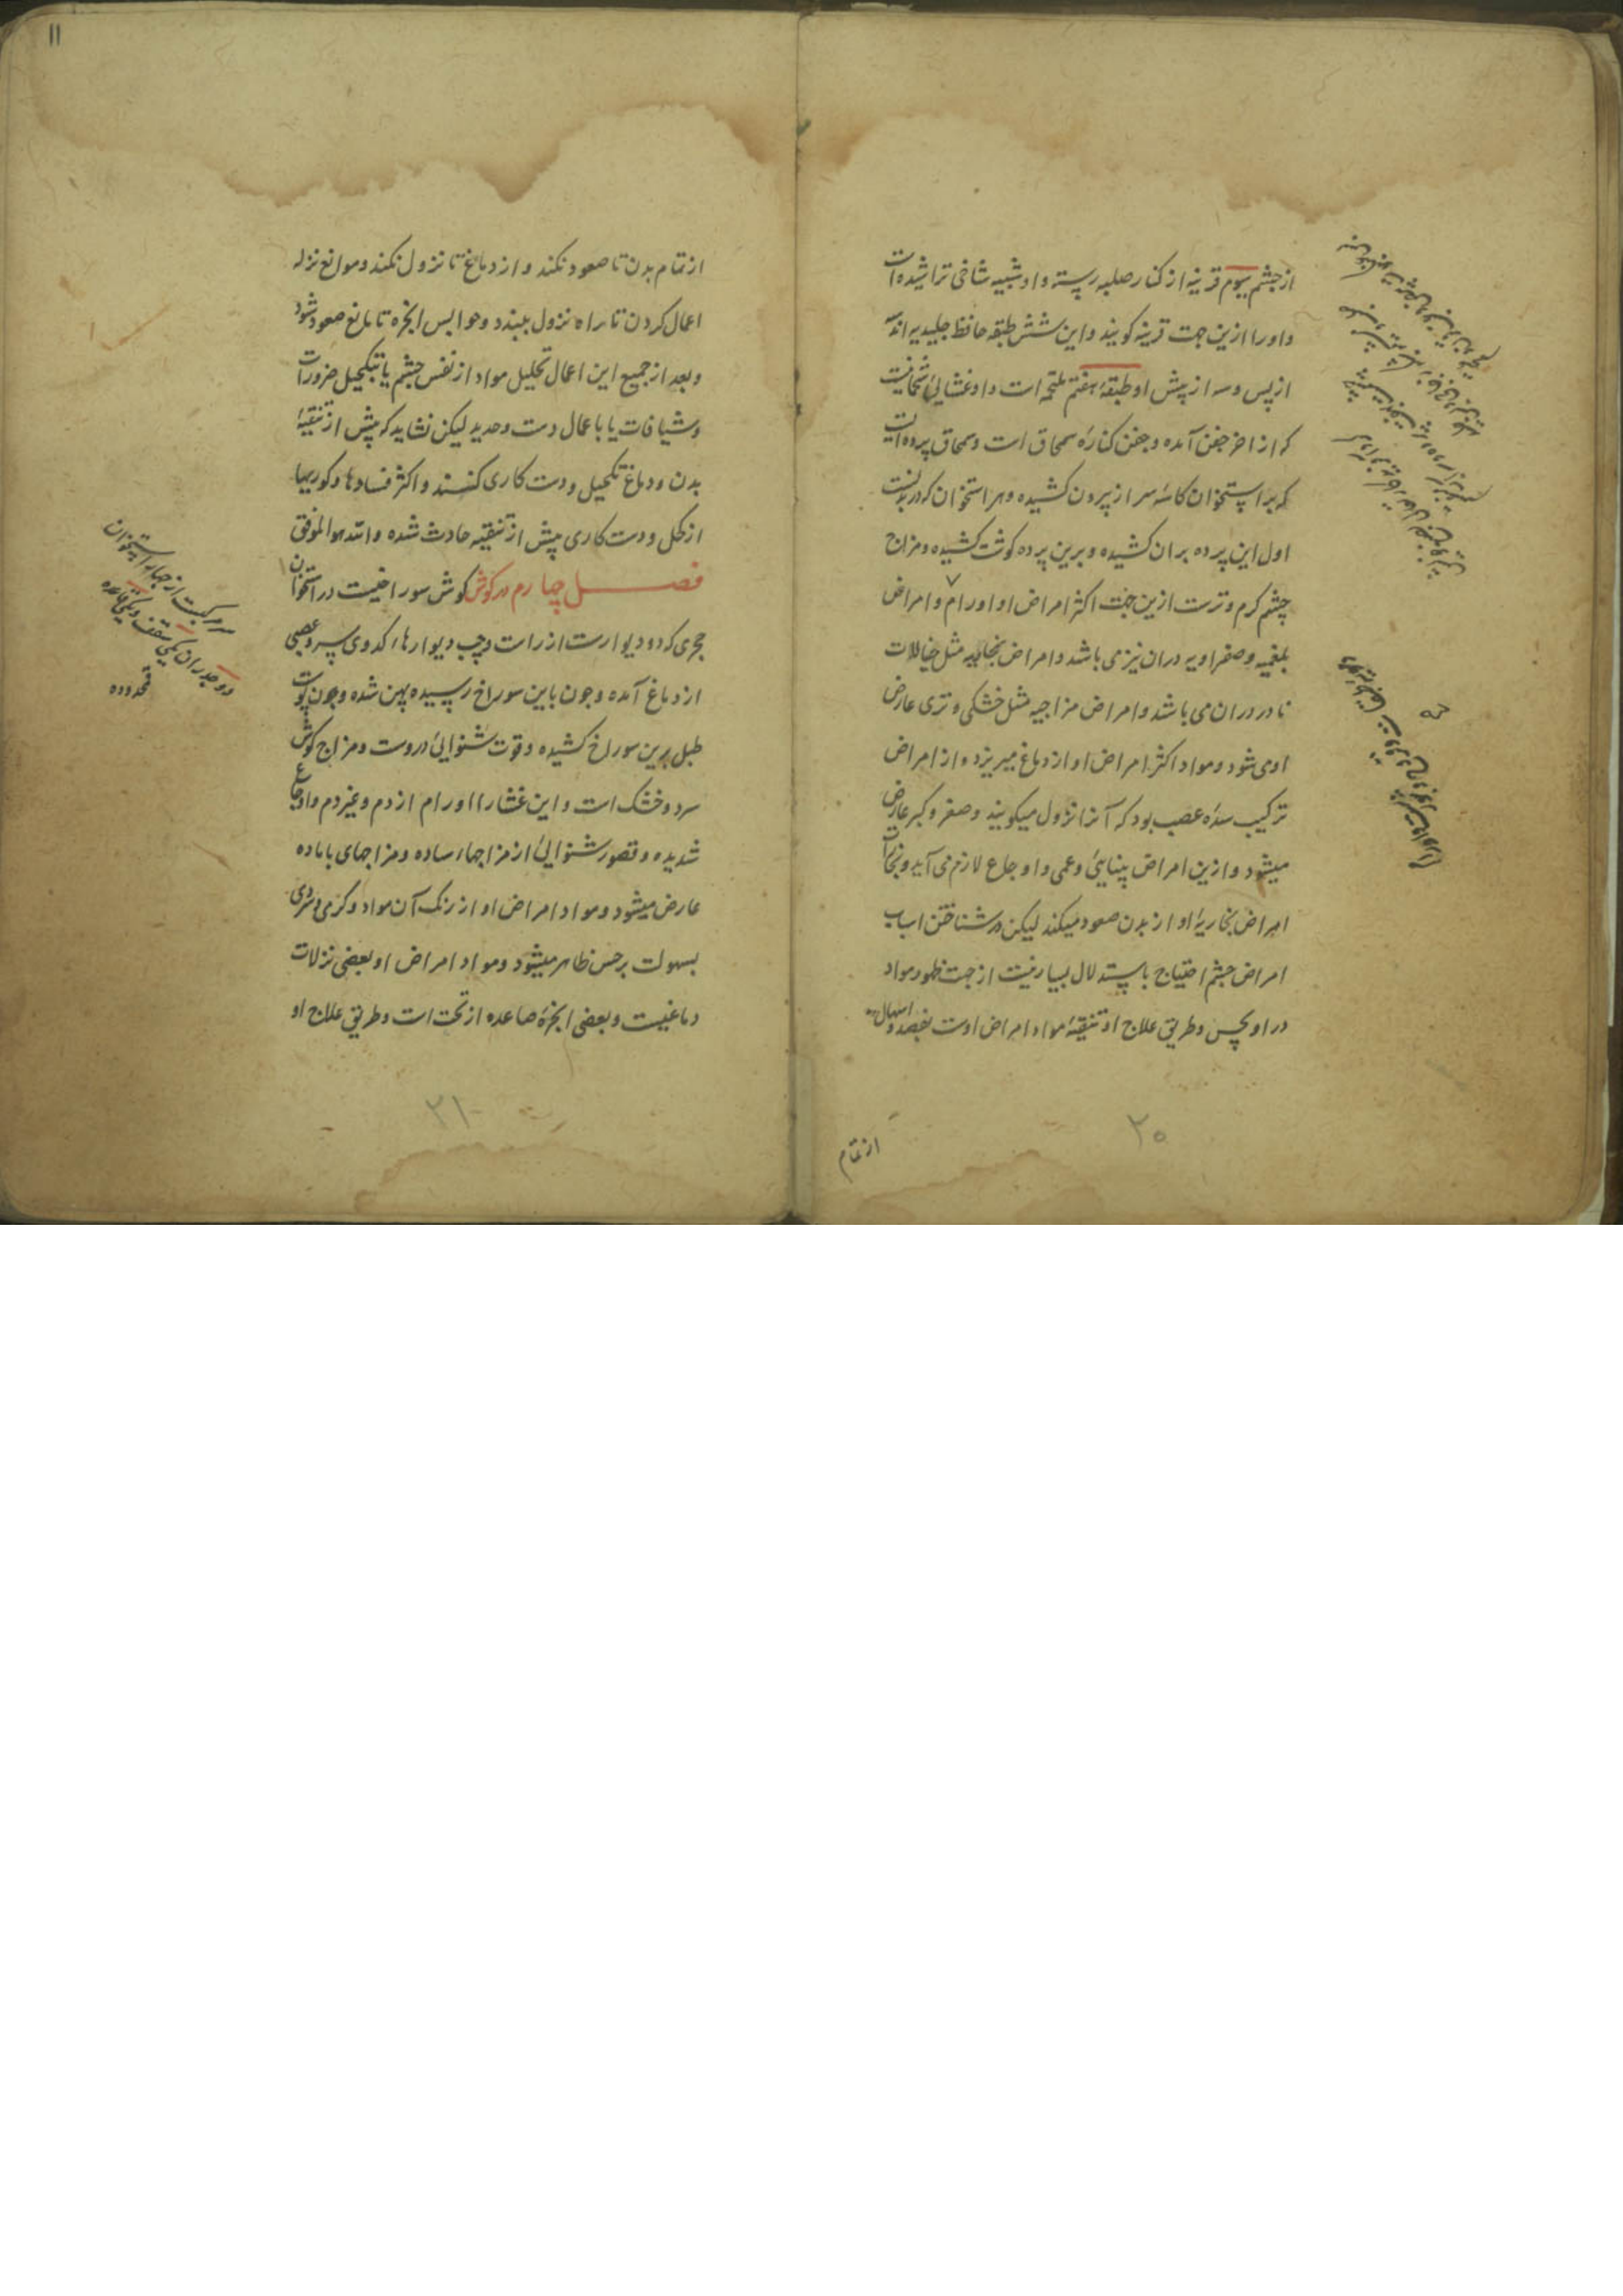 از چشم سوم قرنیه از کنار صلبه رسته و او شبیه شاخی تراشیده است
و او را ازین جهت قرنیه کویند و این شش طبقه حافظ جلیدیه اند سه
از پس و سه از پیش او طبقهٔ هفتم ملتحمه است و او غشایی
که از اخر جفن آمده و جفن کنارهٔ سمحاق است و سمحاق پرده ایست
که بر استخوان کاسهٔ سر از بیرون کشیده و هر استخوان که در بدنست
اول این پرده بران کشیده و برین پرده کوشت کشیده و مزاج
چشم کرم و ترست ازین جهت اکثر امراض او اورام و امراض
بلغمیه و صفراویه دران نیز می باشد و امراض بخاریه مثل خیالات
نادر دران می باشد و امراض مزاجیه مثل خشکی و تری عارض
او می شود و مواد اکثر امراض او از دماغ میریزد و از امراض
ترکیب سدهٔ عصب بود که آنرا نزول میکویند و صغر و کبر عارض
میشود و ازین امراض بینایی و عمی و اوجاع لازم می آید و
امراض بخاریهٔ او از بدن صعود میکند لیکن در شناختن اسباب
امراض چشم احتیاج باستدلال بسیار نیست از جهت ظهور مواد
در او بحس و طریق علاج او تنقیهٔ مواد امراض اوست بفصد و اسهال
۲۰
از تمام
۱۱
از تمام بدن تا صعود نکند و از دماغ تا نزول نکند و موانع نزله
اعمال کردن تا راه نزول ببندد و حوابس ابخره تا مانع صعود شود
و بعد از جمیع این اعمال تحلیل مواد از نفس چشم یا بتکحیل ضرورات
و شیافات یا باعمال دست و حدید لیکن نشاید که پیش از تنقیهٔ
بدن و دماغ تکحیل و دست کاری کنند و اکثر فسادها و کوریها
از کحل و دست کاری پیش از تنقیه حادث شده والله هو الموفق
فصل چهارم در کوش کوش سوراخیست در استخوان
حجری که دو دیوارست از راست و چپ دیوارها کدوی سر و عصبی
از دماغ آمده و چون باین سوراخ رسیده پهن شده و چون پوست
طبل برین سوراخ کشیده و قوت شنوایی دروست و مزاج کوش
سرد و خشک است و این غشا را اورام از دم و غیر دم و اوجاع
شدیده و قصور شنوایی از مزاجهاء ساده و مزاجهای با ماده
عارض میشود و مواد امراض او از رنک آن مواد و کرمی و سردی
بسهولت بر حس ظاهر میشود و مواد امراض او بعضی نزلات
دماغیست و بعضی ابخرهٔ صاعده از تحت است و طریق علاج او
سر مرکبست از چهار استخوان
دو جدران یکی سقف و یکی قاعده
قمحدوده
۲۱